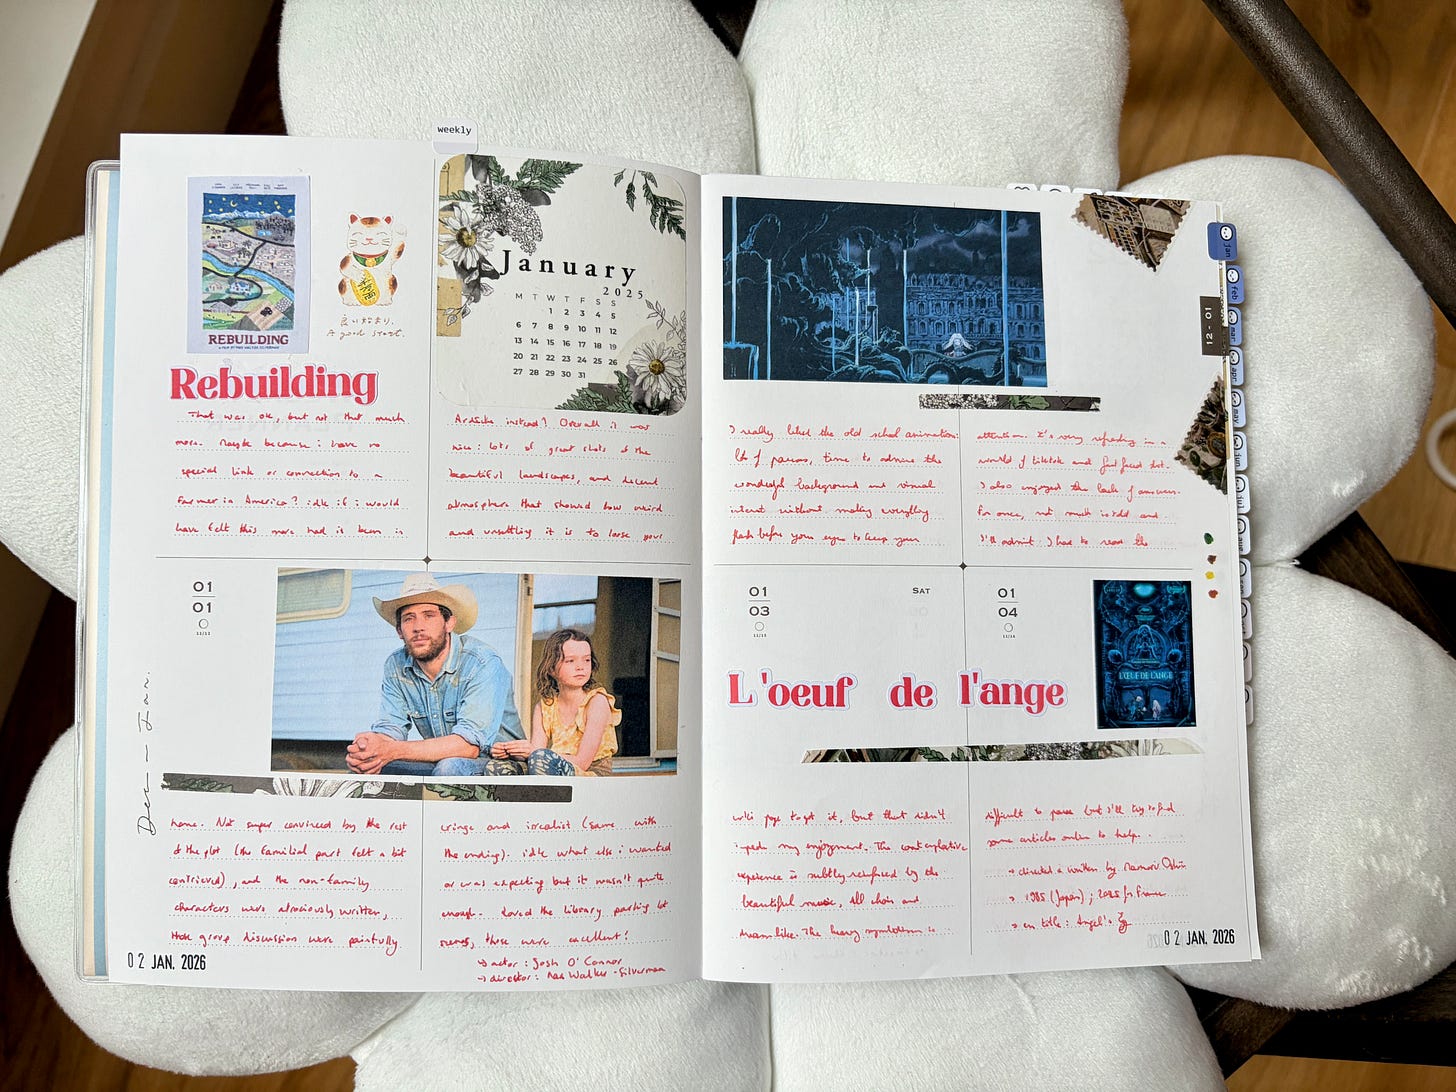 weekly
REBUILDING
良い始まり。
A good start.
Rebuilding
That was ok, but not that much
more. Maybe because i have no
special link or connection to a
farmer in America? idk if i would
have felt this more had it been in
January
2025
M T W T F S S
1 2 3 4 5
6 7 8 9 10 11 12
13 14 15 16 17 18 19
20 21 22 23 24 25 26
27 28 29 30 31
Ardèche instead? Overall it was
nice: lots of great shots of the
beautiful landscapes, and decent
atmosphere that showed how weird
and unsettling it is to lose your
01
01
Dec — Jan.
home. Not super convinced by the rest
of the plot (the familial part felt a bit
contrieved), and the non-family
characters were atrociously written,
those group discussion were painfully
02 JAN. 2026
cringe and irrealist (same with
the ending). idk what else i wanted
or was expecting but it wasn't quite
enough. Loved the library parking lot
scenes, those were excellent!
↳ actor: Josh O'Connor
↳ director: Max Walker-Silverman
12 - 01
I really liked the old school animation:
lots of pauses, time to admire the
wonderful background and visual
intent without making everything
flash before your eyes to keep your
attention. It's very refreshing in a
world of tiktok and fast paced
I also enjoyed the lack of answers.
For once, not much is told and
I'll admit I had to read the
01
03
SAT
01
04
L'ŒUF DE L'ANGE
L'oeuf de l'ange
wiki page to get it, but that didn't
impede my enjoyment. The contemplative
experience is subtly reinforced by the
beautiful music, all choir and
dreamlike. The heavy symbolism is
difficult to parse but I'll try to find
some articles online to help.
→ directed & written by Mamoru Oshii
→ 1985 (Japan); 2025 for France
→ en title: Angel's Egg
02 JAN. 2026
jan
feb
mar
apr
may
jun
jul
aug